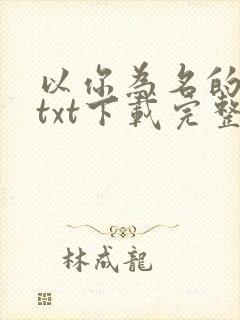 以你為名的
txt下載完整
林成龍